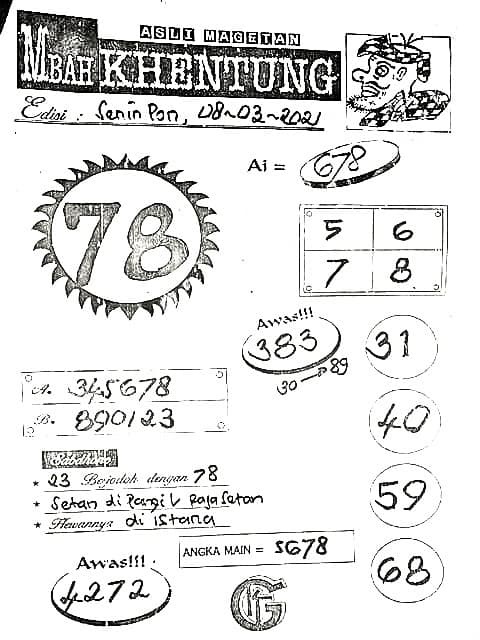 ASLI MAGETAN
MBAH KHENTUNG
Edisi : Senin Pon, 08-03-2021
Ai = 678
78
5 6
7 8
Awas!!!
383
30 → 89
31
40
59
68
A. 345678
B. 890123
* 23 Berjodoh dengan 78
* Setan di Panggil Raja Setan
* Hewannya di istana
ANGKA MAIN = 5678
Awas!!!
4272